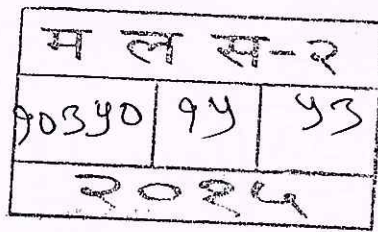 म ल स-२
१०३५० १५ ५३
२०२५